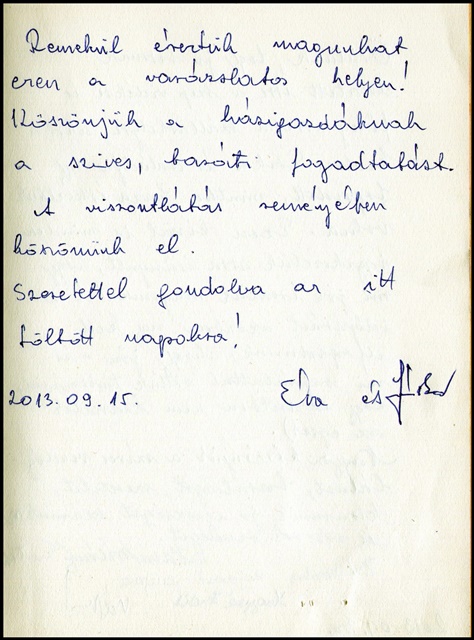 Remekül éreztük magunkat
ezen a varázslatos helyen!
Köszönjük a házigazdáknak
a szives, baráti fogadtatást.
A viszontlátás reményében
köszönünk el.
Szeretettel gondolva az itt
töltött napokra!
2013.09.15. Éva és